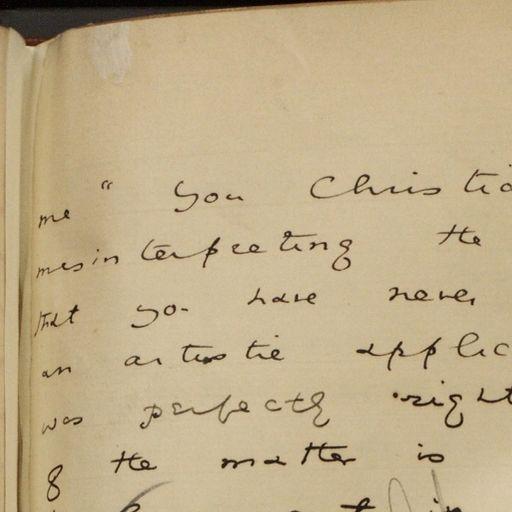 me " You Christia
misinterpreting the
that you have never
an artistic applic
was perfectly right
of the matter is